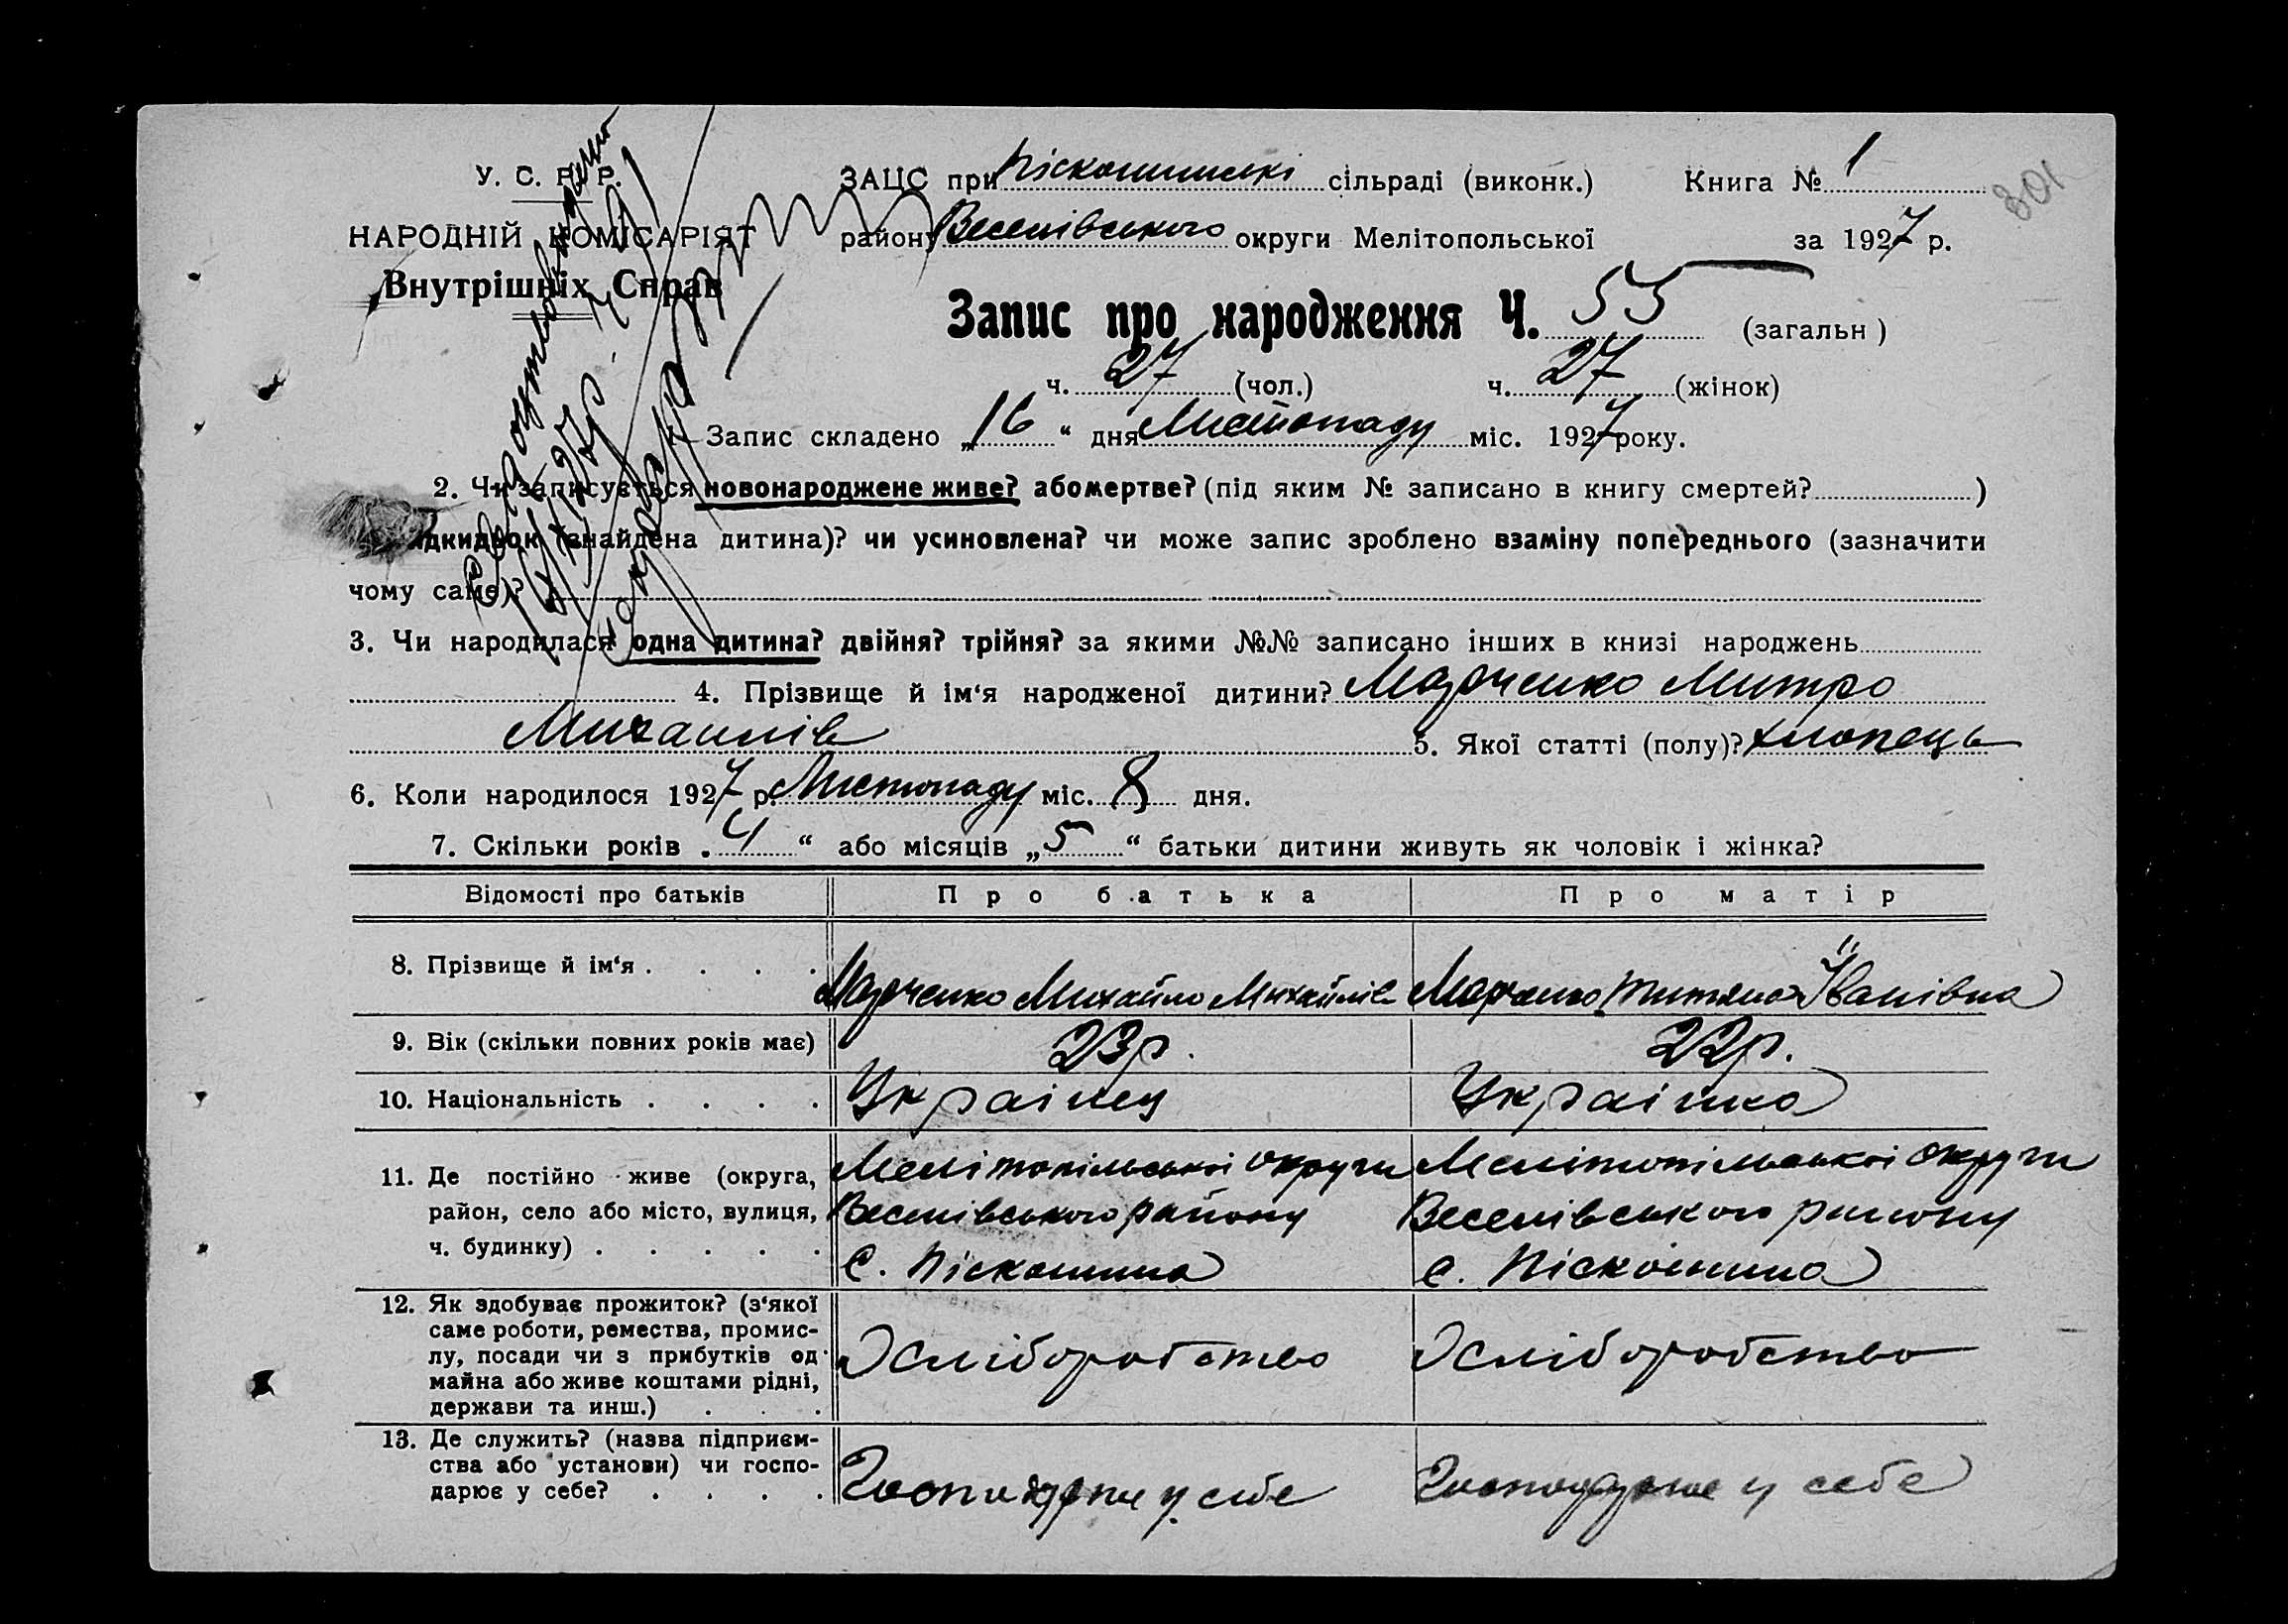 У. С. Р. Р.
НАРОДНІЙ КОМІСАРІЯТ
Внутрішніх Справ
ЗАЦС при Піскошинські сільраді (виконк.) Книга № 1
301
району Веселівського округи Мелітопольської за 1927 р.
Запис про народження Ч. 55 (загальн)
ч. 27 (чол.) ч. 27 (жінок)
Запис складено „16“ дня Листопаду міс. 1927 року.
2. Чи записується новонароджене живе? або мертве? (під яким № записано в книгу смертей? )
підкидьок (знайдена дитина)? чи усиновлена? чи може запис зроблено взаміну попереднього (зазначити
чому саме)?
3. Чи народилася одна дитина? двійня? трійня? за якими №№ записано інших в книзі народжень
4. Прізвище й ім‘я народженої дитини? Марченко Митро
Михайлів 5. Якої статті (полу)? хлопець
6. Коли народилося 1927 р. Листопаду міс. 8 дня.
7. Скільки років „4“ або місяців „5“ батьки дитини живуть як чоловік і жінка?
Відомості про батьків Про батька Про матір
8. Прізвище й ім‘я . . . . Марченко Михайло Михайлів Марченко Іванівна
9. Вік (скільки повних років має) 23р. 22р.
10. Національність . . . . Українец Українка
11. Де постійно живе (округа, Мелітопільської округи Мелітопільської округи
район, село або місто, вулиця, Веселівського району Веселівського району
ч. будинку) . . . . . с. Піскошина с. Піскошина
12. Як здобуває прожиток? (з‘якої
саме роботи, ремества, промис-
лу, посади чи з прибутків од Хліборобство Хліборобство
майна або живе коштами рідні,
держави та инш.) . . .
13. Де служить? (назва підприєм-
ства або установи) чи госпо-
дарює у себе? . . . . у себе у себе